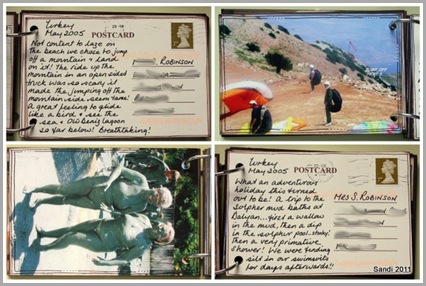 Turkey
May 2005
POSTCARD
Not content to laze on
the beach we chose to jump
off a mountain & land
on it! The ride up the
mountain in an open sided
truck was so scary it
made the jumping off the
mountain side seem tame!
A great feeling to glide
like a bird & see the
sea & Olu Deniz lagoon
so far below! Breathtaking!
ROBINSON
Turkey
May 2005
POSTCARD
What an adventurous
holiday this turned
out to be! A trip to the
sulpher mud baths at
Dalyan...first a wallow
in the mud, then a dip
in the sulpher pool..stinky!
then a very primative
shower! We were finding
silt in our swimsuits
for days afterwards!!
MRS S. ROBINSON
Sandi 2011